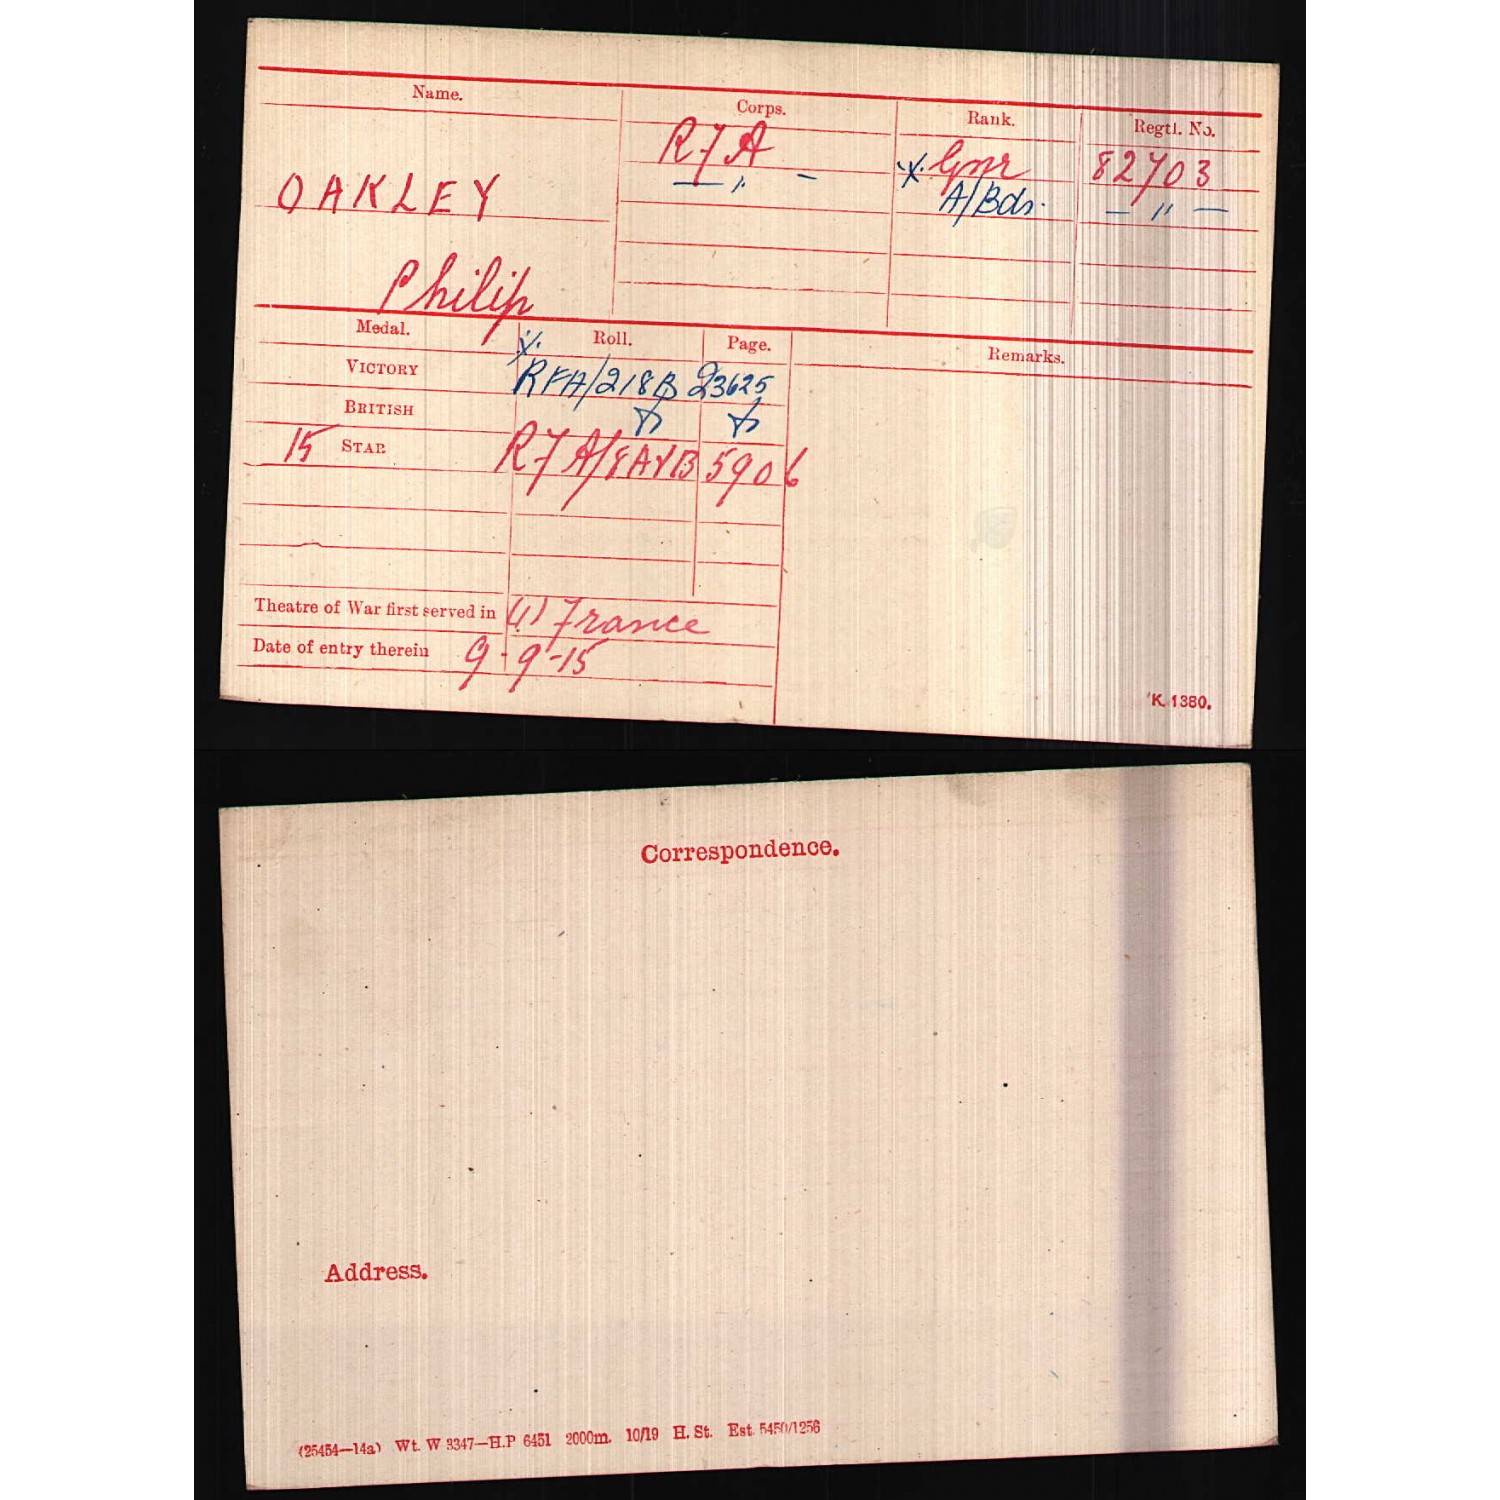 Name. Corps. Rank. Regtl. No.
R F A X. Gnr 82703
OAKLEY — " — A/Bdr. — " —
Philip
Medal. X. Roll. Page. Remarks.
VICTORY RFA/218B 23625
BRITISH
15 STAR RFA/8AYB 5906
Theatre of War first served in (1) France
Date of entry therein 9-9-15
K. 1380.
Correspondence.
Address.
(25454—14a) Wt. W 3347—H.P 6451 2000m. 10/19 H. St. Est. 5450/1256